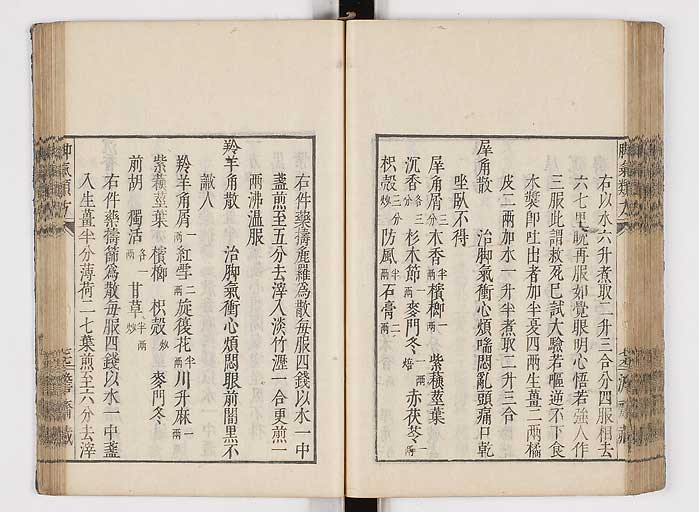 右以水六升煮取二升三合分四服相去
六七里晩再服如覺眼明心悟若強人作
三服此謂救死已試大驗若嘔逆不下食
水漿即吐出者加半夏四兩生薑二兩橘
皮二兩加水一升半煮取二升三合
犀角散　治脚氣衝心煩喘悶亂頭痛口乾
坐臥不得
犀角屑三分 木香半兩 檳榔一兩 紫蘇莖葉
沉香各三分 杉木節一兩 麥門冬一兩焙 赤茯苓一兩
枳殼三分炒 防風半兩 石膏二兩
右件藥擣麁羅為散毎服四錢以水一中
盞煎至五分去滓入淡竹瀝一合更煎一
兩沸温服
羚羊角散　治脚氣衝心煩悶眼前闇黒不
識人
羚羊角屑一兩 紅雪二兩 旋復花半兩 川升麻一兩
紫蘇莖葉 檳榔 枳殼炒 麥門冬
前胡 獨活各一兩 甘草半兩炒
右件藥擣篩為散毎服四錢以水一中盞
入生薑半分薄荷二七葉煎至六分去滓
脚氣類方